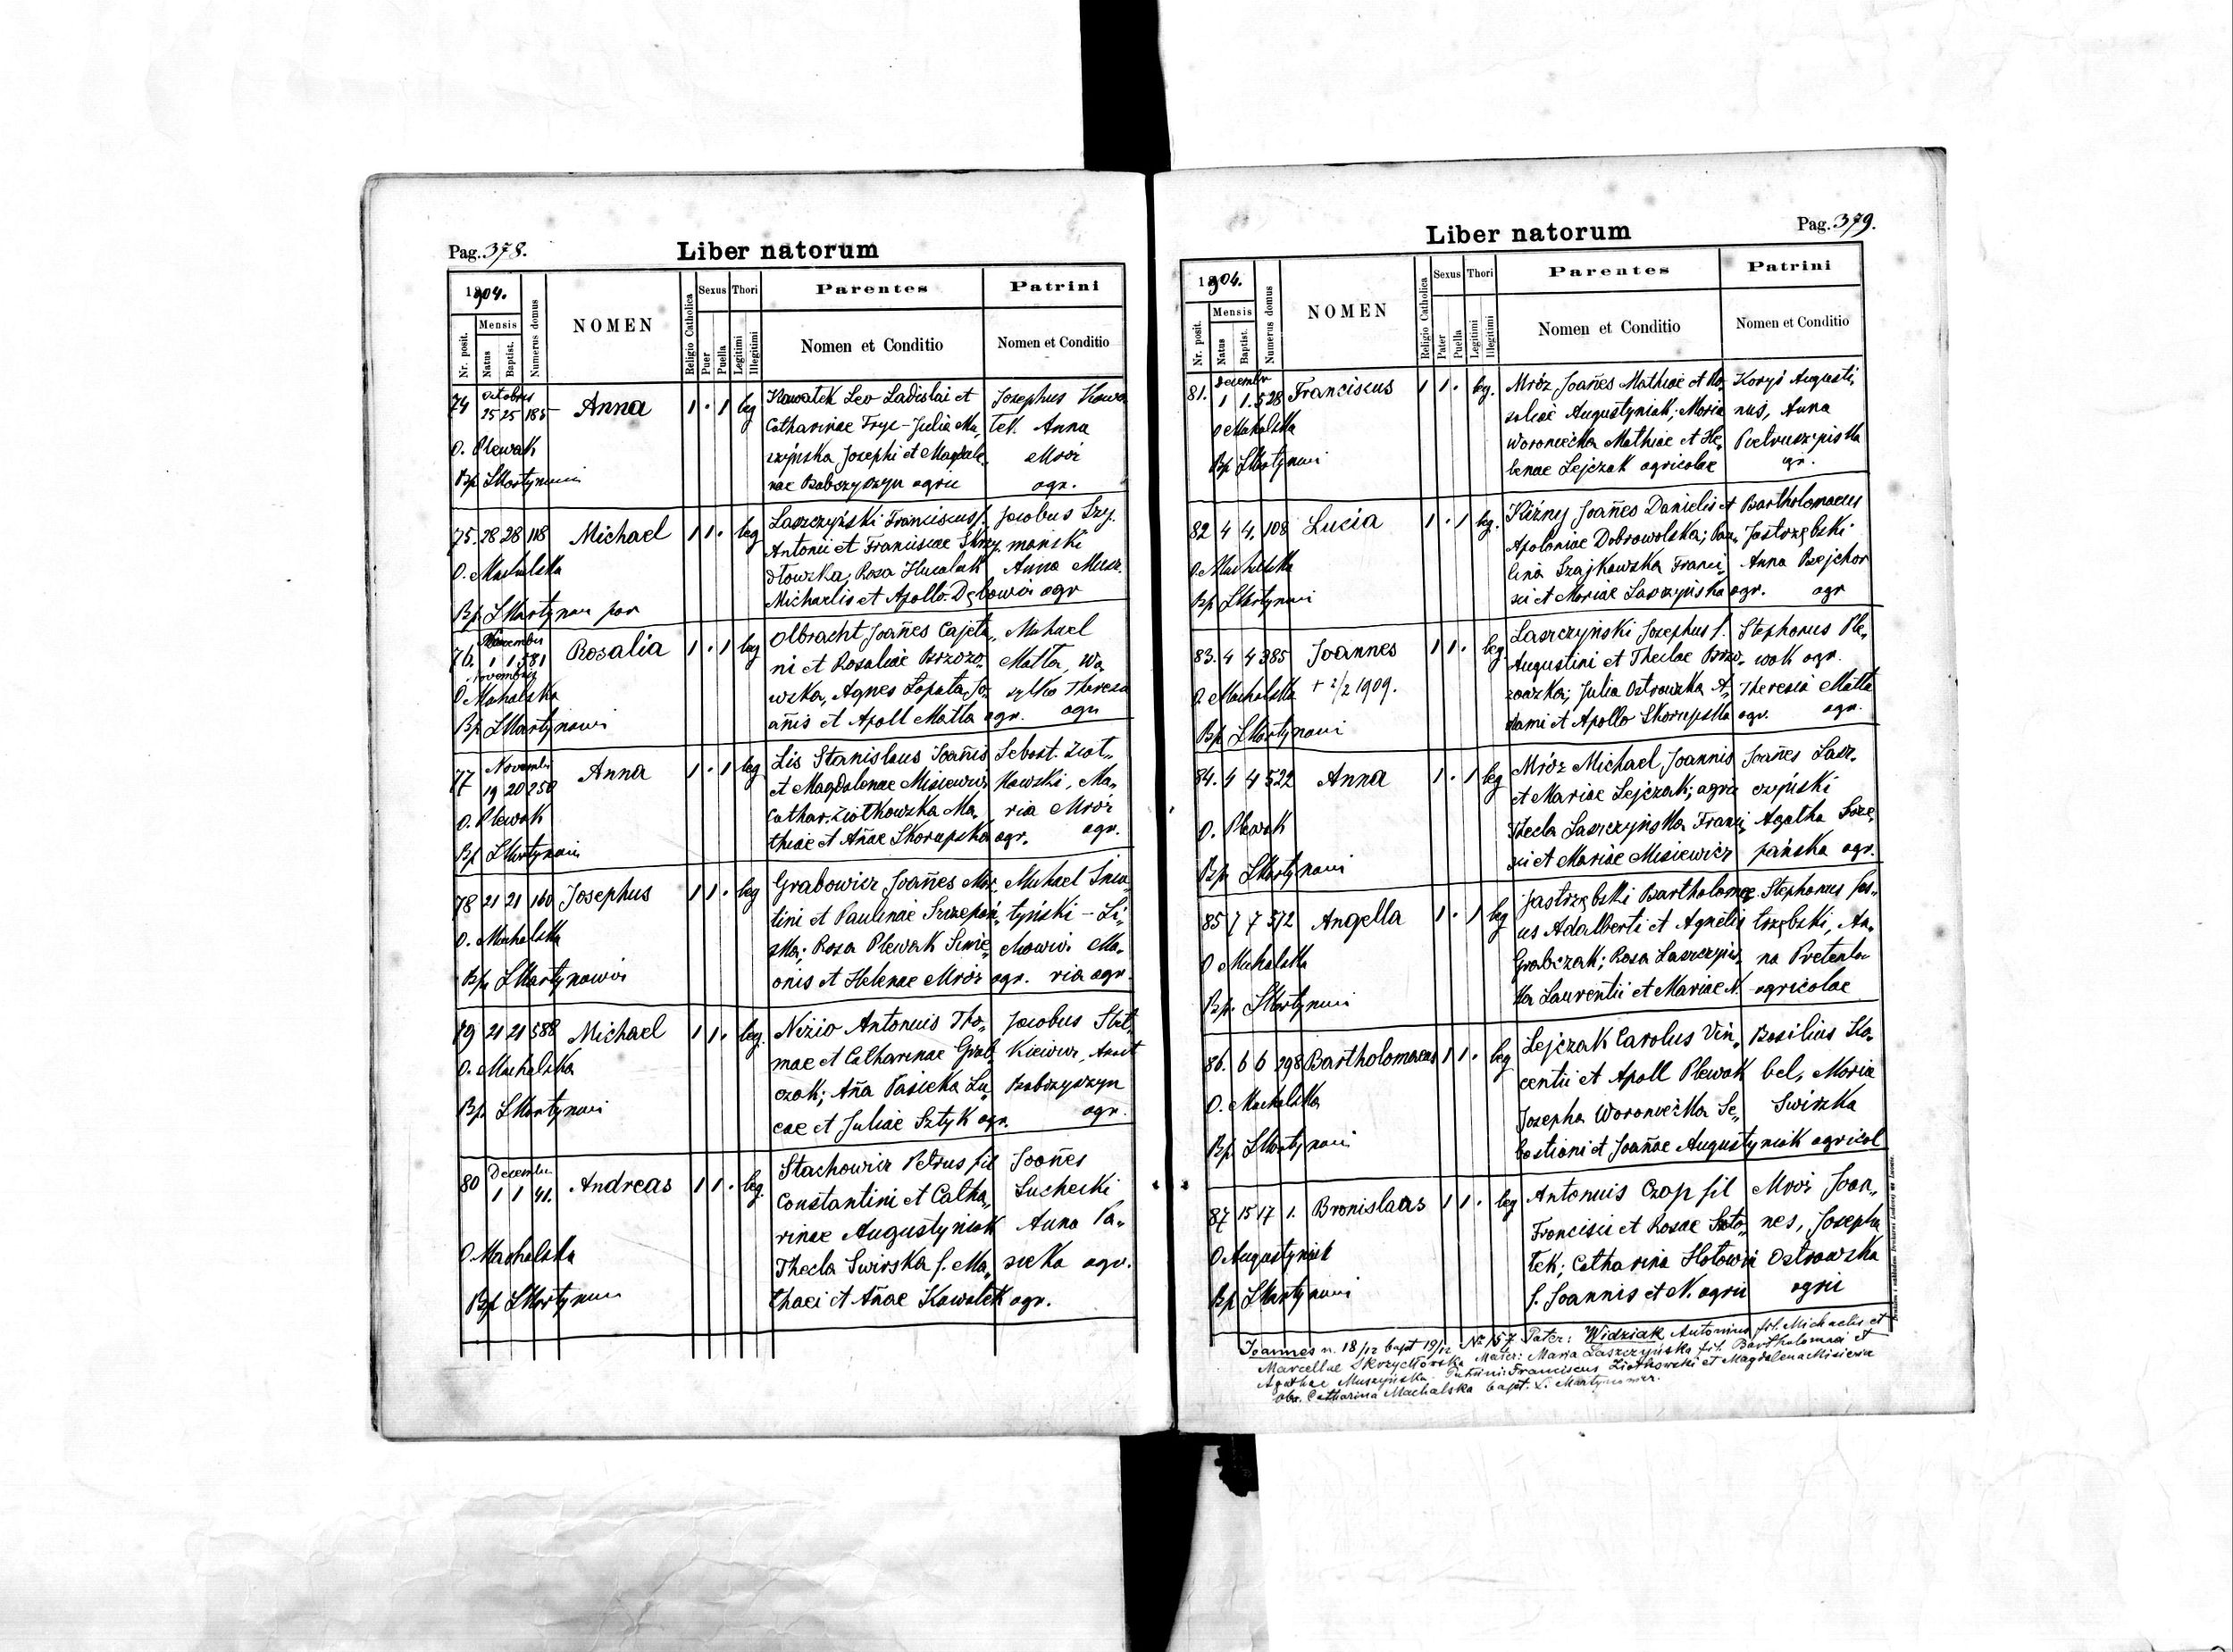 Pag. 378.
Liber natorum
1904.
Nr. posit.
Mensis
Natus
Baptist.
Numerus domus
NOMEN
Religio Catholica
Sexus
Puer
Puella
Thori
Legitimi
Illegitimi
Parentes
Nomen et Conditio
Patrini
Nomen et Conditio
74 Octobris 25 25 185 Anna 1 . 1 leg
Kawałek Leo Ladislai et
Catharinae Fryc - Julia Mu„
szyńska Josephi et Magdale„
nae Babszyszyn agric
Josephus Kawa
łek. Anna
Mróz
agr.
O. Plewak
Bp. Ł Martynowicz
75. 28 28 118 Michael 1 1 . leg
Laszczyński Franciscus f.
Antonii et Franciscae Skrzy„
dłowska; Rosa Hucalak
Michaelis et Apollo. Dębowicz agr
Jacobus Szy„
mański
Anna Musz.
O. Machalska
Bp. Ł Martynow par
76. Novembris 1 1 581 Rosalia 1 . 1 leg
Olbracht Joañes Cajeta„
ni et Rosaliae Brzozo„
wska, Agnes Łopata Jo„
añis et Apoll Matla agr.
Michael
Matla, Wa
sylko Theresa
agr
O Machalska
Bp Ł Martynowicz
77 Novembr 19 20 250 Anna 1 . 1 leg
Lis Stanislaus Joañis
et Magdalenae Misiewicz
Cathar. Ziółkowska Ma„
thiae et Añae Skorupska agr.
Sebast. Ziół„
kowski, Ma„
ria Mróz
agr.
O. Plewak
Bp Ł Martynowicz
78 21 21 160 Josephus 1 1 . leg
Grabowicz Joañes Mar„
tini et Paulinae Szczepań„
ska; Rosa Plewak Sime„
onis et Helenae Mróz agr.
Michael Śnia„
tyński - Li„
chowicz Ma„
ria agr.
O. Machalska
Bp. Ł Martynowicz
79 21 21 588 Michael 1 1 . leg.
Nizio Antonius Tho„
mae et Catharinae Grab„
czak; Aña Pasieka Lu„
cae et Juliae Sztyk agr.
Jacobus
kiewicz,
Babszyszyn
agr.
O. Machalska
Bp. Ł Martynowicz
80 Decembr 1 1 41. Andreas 1 1 . leg.
Stachowicz Petrus fil
Constantini et Catha„
rinae Augustyniak
Thecla Swirska f. Ma„
thaei et Añae Kawałek agr.
Joañes
Suchecki
Anna Pa„
sieka agr.
O Machalska
Bp Ł Martynowicz
Pag. 379.
Liber natorum
1904.
Nr. posit.
Mensis
Natus
Baptist.
Numerus domus
NOMEN
Religio Catholica
Sexus
Pater
Puella
Thori
Legitimi
Illegitimi
Parentes
Nomen et Conditio
Patrini
Nomen et Conditio
81. Decembr 1 1. 528 Franciscus 1 1 . leg.
Mróz Joañes Mathiae et Ro„
saliae Augustyniak; Maria
Woroniecka Mathiae et He„
lenae Lejczak agricolae
Koryś Augusti„
nus, Anna
Pietruszyńska
agr.
O Machalska
Bp Ł Martynowicz
82 4 4. 108 Lucia 1 . 1 leg.
Kiżny Joañes Danielis et
Apoloniae Dobrowolska; Pau„
lina Szajkowska Franci„
sci et Mariae Laszczyńska agr.
Bartholomaeus
Jastrzębski
Anna Bejchor
agr
O. Machalska
Bp. Ł Martynowicz
83. 4 4 385 Joannes 1 1 . leg
+ 2/2 1909.
Laszczyński Josephus f.
Augustini et Theclae Brzo„
zowska; Julia Ostrowska A„
dami et Apollo Skorupska agr.
Stephanus Ple„
wak agr.
Theresia Matla
agr.
O. Machalska
Bp Ł Martynowicz
84. 4 4 522 Anna 1 . 1 leg
Mróz Michael Joannis
et Mariae Lejczak; agric
Thecla Laszczyńska Franci„
sci et Mariae Misiewicz
Joañes Lasz„
czyński
Agatha Szcze„
pańska agr.
O. Plewak
Bp. Ł Martynowicz
85 7 7 572 Angella 1 . 1 leg
Jastrzębski Bartholomae„
us Adalberti et Agnetis
Grabczak; Rosa Laszczyńs„
ka Laurentii et Mariae N.
Stephanus Jas„
trzębski, An„
na Pretenla
agricolae
O Machalska
Bp. Ł Martynowicz
86. 6 6 298 Bartholomaeus 1 1 . leg
Lejczak Carolus Vin„
centii et Apoll Plewak
Josepha Woroniecka Se„
bastiani et Joañae Augustyniak agricol
Basilius Ko„
bel, Maria
Swirska
O. Machalska
Bp. Ł Martynowicz
87 15 17 1. Bronislaus 1 1 . leg
Antonius Czop fil
Francisci et Rosae Szto„
łek; Catharina Hołowicz
f. Joannis et N. agric
Mróz Joan„
nes, Josepha
Ostrowska
agric
O Augustyniak
Bp Ł Martynowicz
Joannes n. 18/12 bapt 19/12 No 157 Pater: Widziak Antonius fil. Michaelis et
Marcellae Skrzydłowska Mater: Maria Laszczyńska fil. Bartholomaei et
Agathae Muszyńska. Patrini: Franciscus Ziółkowski et Magdalena Misiewicz
obs. Catharina Machalska bapt. Ł. Martynowicz.